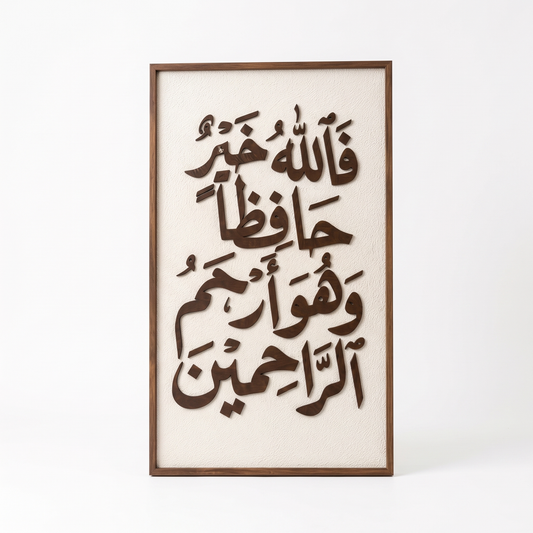 فَٱللَّهُ خَيْرٌ
حَافِظًا
وَهُوَ أَرْحَمُ
ٱلرَّاحِمِيْنَ